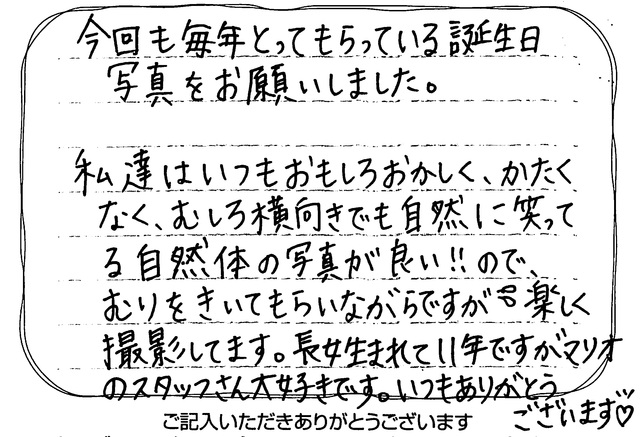 今回も毎年とってもらっている誕生日
写真をお願いしました。
私達はいつもおもしろおかしく、かたく
なく、むしろ横向きでも自然に笑って
る自然体の写真が良い!!ので、
むりをきいてもらいながらですが 楽しく
撮影してます。長女生まれて11年ですがマリオ
のスタッフさん大好きです。いつもありがとう
ございます♡
ご記入いただきありがとうございます